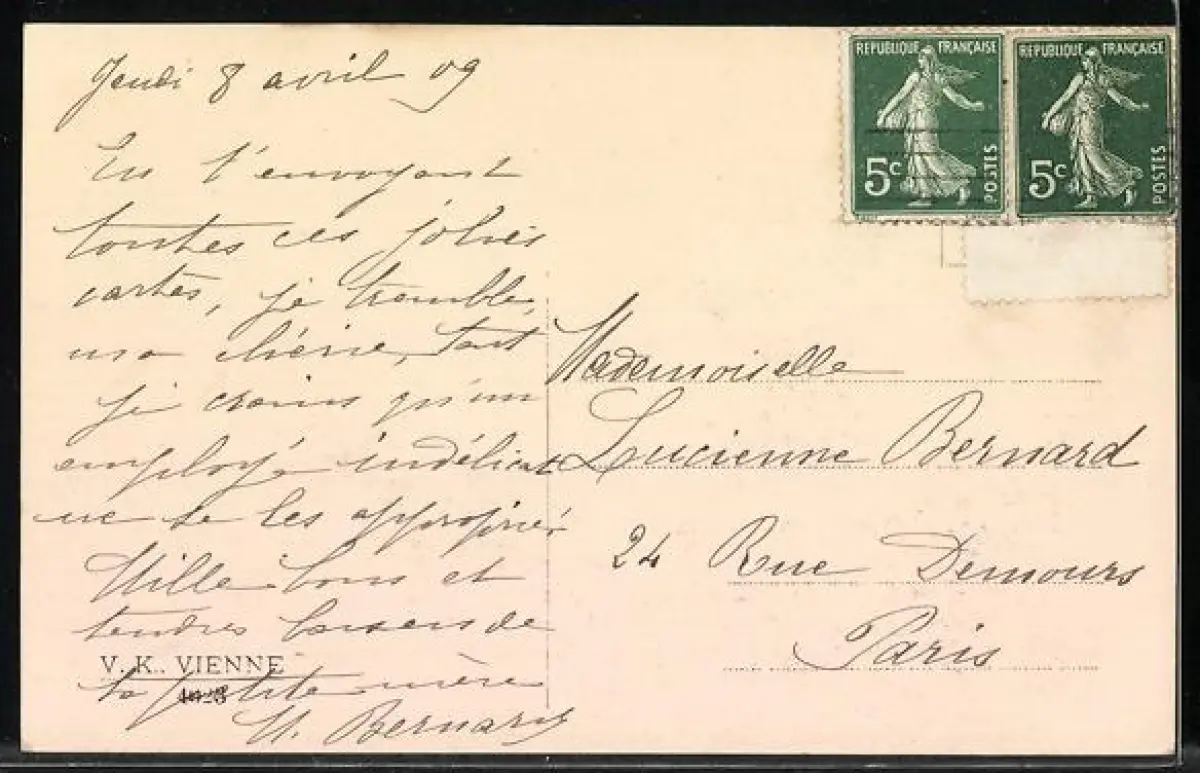 Jeudi 8 avril 09
En t'envoyant
toutes ces jolies
cartes, je tremble,
ma chérie, tant
je crains qu'un
employé indélicat
ne se les approprie.
Mille bons et
tendres baisers de
ta petite mère
M. Bernard
V. K. VIENNE
REPUBLIQUE FRANÇAISE
5c
POSTES
REPUBLIQUE FRANÇAISE
5c
POSTES
Mademoiselle
Lucienne Bernard
24 Rue Demours
Paris